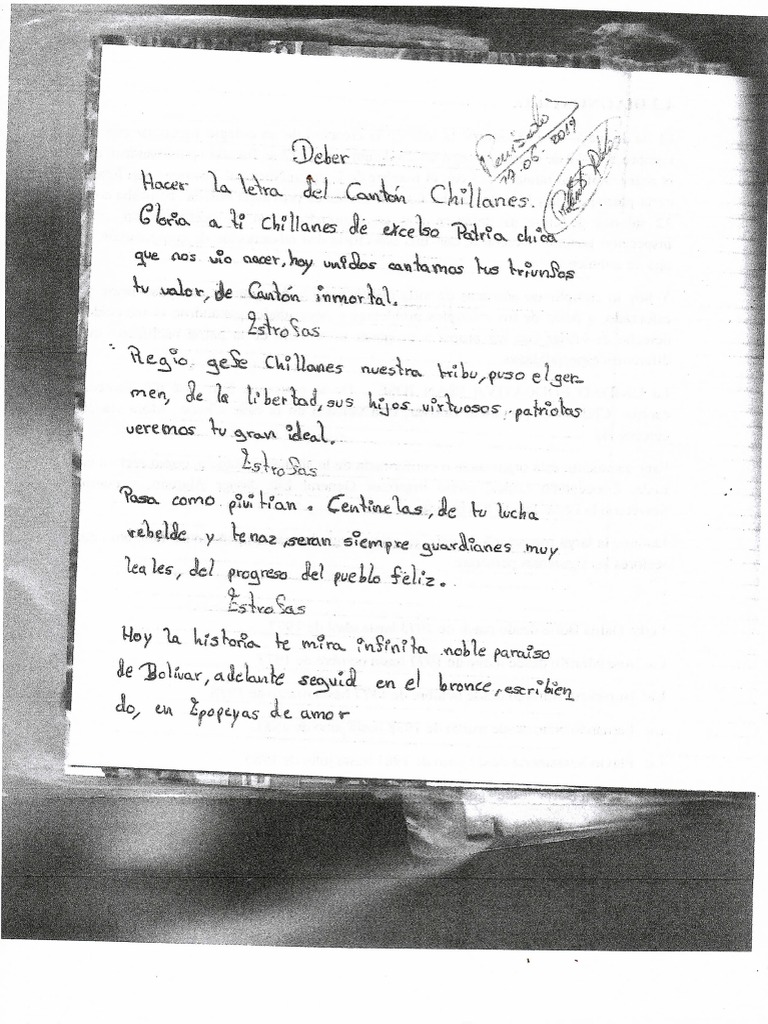 Revisado
19.06.2019
Deber
Hacer la letra del Cantón Chillanes.
Gloria a ti Chillanes de excelso Patria chica
que nos vio nacer, hoy unidos cantamos tus triunfos
tu valor, de Cantón inmortal.
Estrofas
Regio gefe Chillanes nuestra tribu, puso el ger-
men, de la libertad, sus hijos virtuosos patriotas
veremos tu gran ideal.
Estrofas
Pasa como pivitian. Centinelas, de tu lucha
rebelde y tenaz, seran siempre guardianes muy
leales, del progreso del pueblo feliz.
Estrofas
Hoy la historia te mira infinita noble paraiso
de Bolívar, adelante seguid en el bronce, escribien
do, en Epopeyas de amor